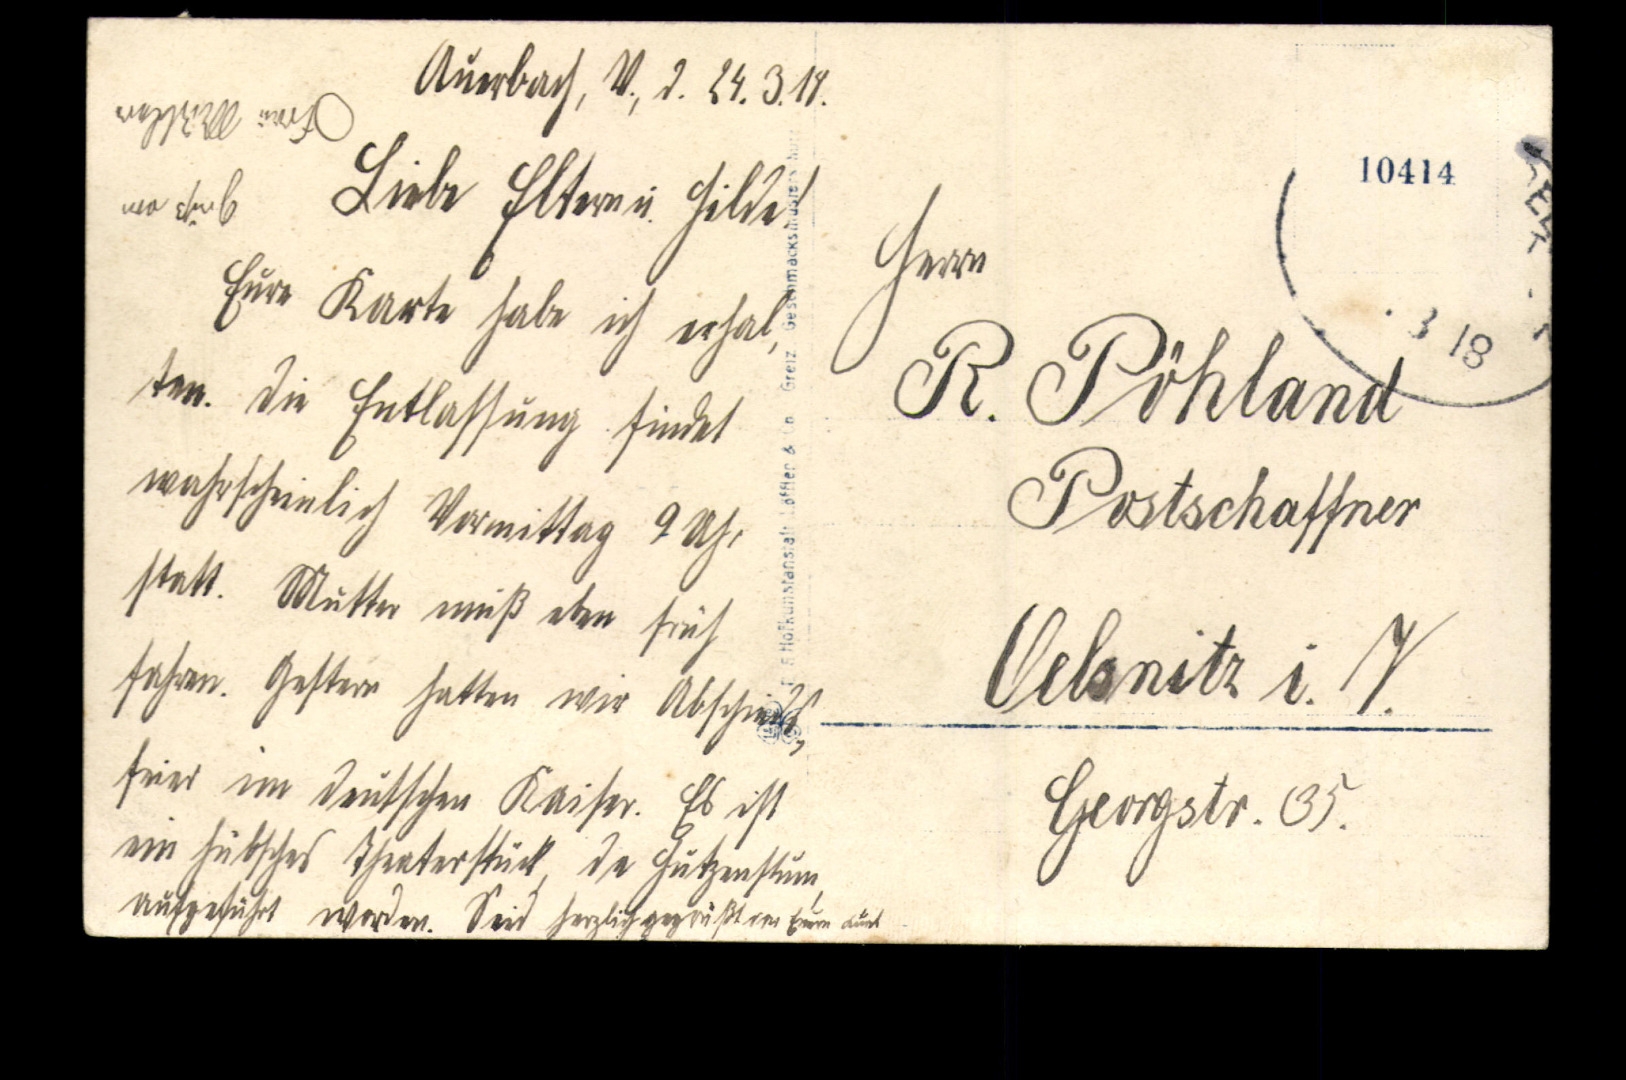 Auerbach, V., d. 24.3.18.
Liebe Eltern u. Hilde!
Eure Karte habe ich erhal-
ten. Die Entlassung findet
wahrscheinlich Vormittag 9 Uhr
statt. Mutter muß eben früh
fahren. Gestern hatten wir Abschieds-
feier im deutschen Kaiser. Es ist
ein hübsches Theaterstück, de Hutzenstum,
aufgeführt worden. Seid herzlich gegrüßt von Eurer
Gruß von
Frau
Hofkunstanstalt Löffler & Co Greiz Geschmacksmuster
10414
3 18
Herrn
R. Pöhland
Postschaffner
Oelsnitz i. V.
Georgstr. 35.